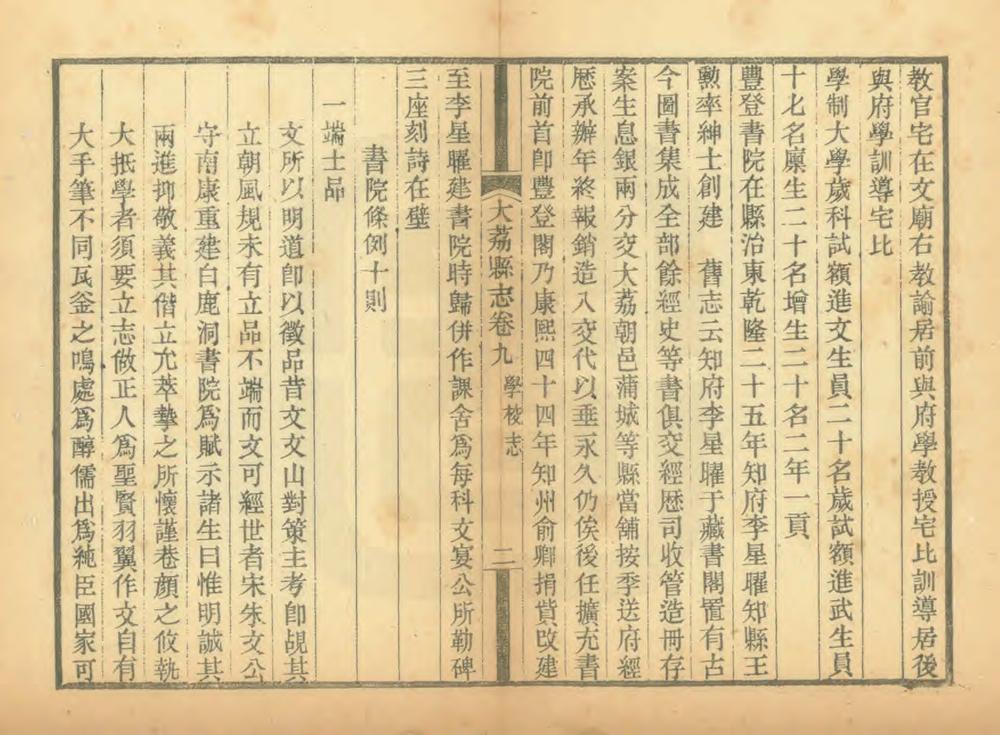 教官宅在文廟右教諭居前與府學教授宅比訓導居後
與府學訓導宅比
學制大學歲科試額進文生員二十名歲試額進武生員
十七名廩生二十名增生二十名二年一貢
豐登書院在縣治東乾隆二十五年知府李星曜知縣王
勲率紳士創建　舊志云知府李星曜于藏書閣置有古
今圖書集成全部餘經史等書俱交經歷司收管造冊存
案生息銀兩分交大荔朝邑蒲城等縣當舖按季送府經
歷承辦年終報銷造入交代以垂永久仍俟後任擴充書
院前首卽豐登閣乃康熙四十四年知州俞卿捐貲改建
大荔縣志卷九　學校志　二
至李星曜建書院時歸併作課舍爲每科文宴公所勒碑
三座刻詩在壁
書院條例十則
一端士品
文所以明道卽以徵品昔文文山對策主考卽覘其
立朝風規未有立品不端而文可經世者宋朱文公
守南康重建白鹿洞書院爲賦示諸生曰惟明誠其
兩進抑敬義其偕立允莘摯之所懷謹巷顏之攸執
大抵學者須要立志做正人爲聖賢羽翼作文自有
大手筆不同瓦釜之鳴處爲醇儒出爲純臣國家可